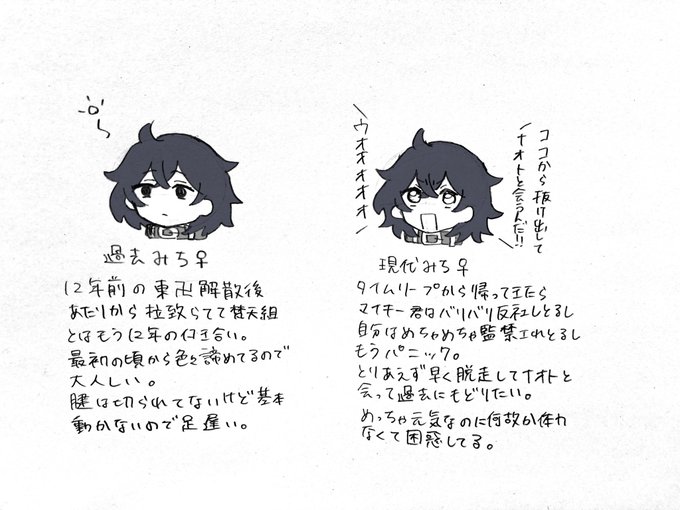 過去みち♀
12年前の東卍解散後
あたりから拉致られてて梵天組
とはもう12年の付き合い。
最初の頃から色々諦めてるので
大人しい。
腱は切られてないけど基本
動かないので足遅い。
ココから抜け出して
ナオトと会うんだ!!
ウオオオオオオ
現代みち♀
タイムリープから帰って来たら
マイキー君はバリバリ反社しとるし
自分はめちゃめちゃ監禁されとるし
もうパニック。
とりあえず早く脱走してナオトと
会って過去にもどりたい。
めっちゃ元気なのに何故か体力
なくて困惑してる。